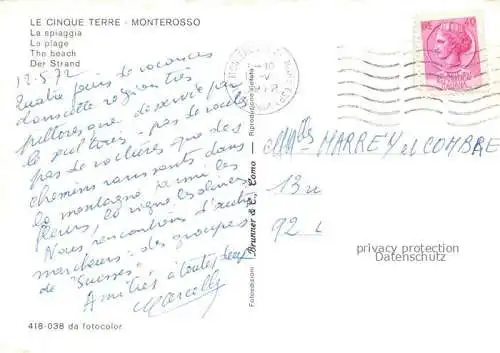 LE CINQUE TERRE - MONTEROSSO
La spiaggia
La plage
The beach
Der Strand
12.5.72
Quatre jours de vacances
dans cette région très
pittoresque, desservie par
le pas de routes
pas de voitures que des
chemins ravissants dans
la montagne parmi les
fleurs, la vigne les oliviers
Nous rencontrons d'autres
marcheurs: des groupes
de "Suisses".
Amitiés à toutes deux
Marcelle
418-038 da fotocolor
Fotoedizioni Brunner & C., Como Riproduzione vietata
40
Mlles MARREY et COMBRE
13
92
privacy protection
Datenschutz